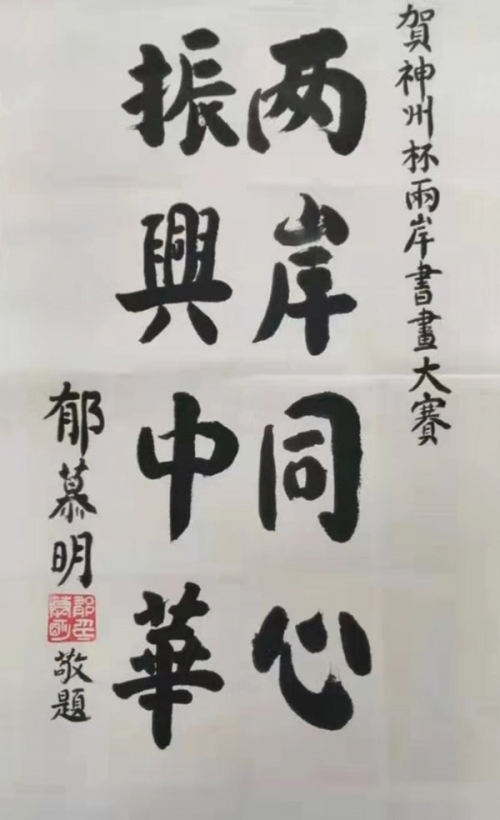 賀神州杯兩岸書畫大賽
两岸同心
振興中華
郁慕明
敬題